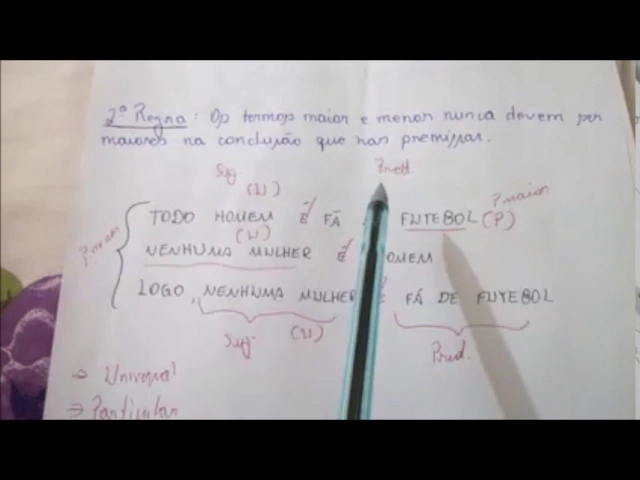 2ª Regra: Os termos maior e menor nunca devem ser
maiores na conclusão que nas premissas.
Suj Pred.
(U)
TODO HOMEM É FÃ FUTEBOL (P) P. maior
(U)
NENHUMA MULHER É HOMEM
LOGO, NENHUMA MULHER É FÃ DE FUTEBOL
Suj. (U) Pred.
→ Universal
→ Particular